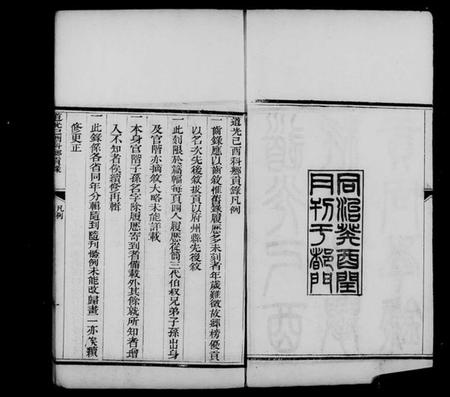 同治癸酉閏
月刊于都門
道光己酉科鄉貢錄凡例
一齒錄應以齒敘惟舊錄履歷多未到者年歲難徵故鄉榜優貢
以名次先後敘拔貢以府州縣先後敘
一此刻限於篇幅每頁四人履歷從簡三代伯叔兄弟子孫出身
及官階亦摘敘大略未能詳載
一本身官階子孫名字除履歷寄到者備載外其餘就所知者增
入不知者俟續修再輯
一此錄係各省同年分輯隨到隨刊條例未能改歸畫一亦俟續
修更正
道光己酉科鄉貢錄
凡例